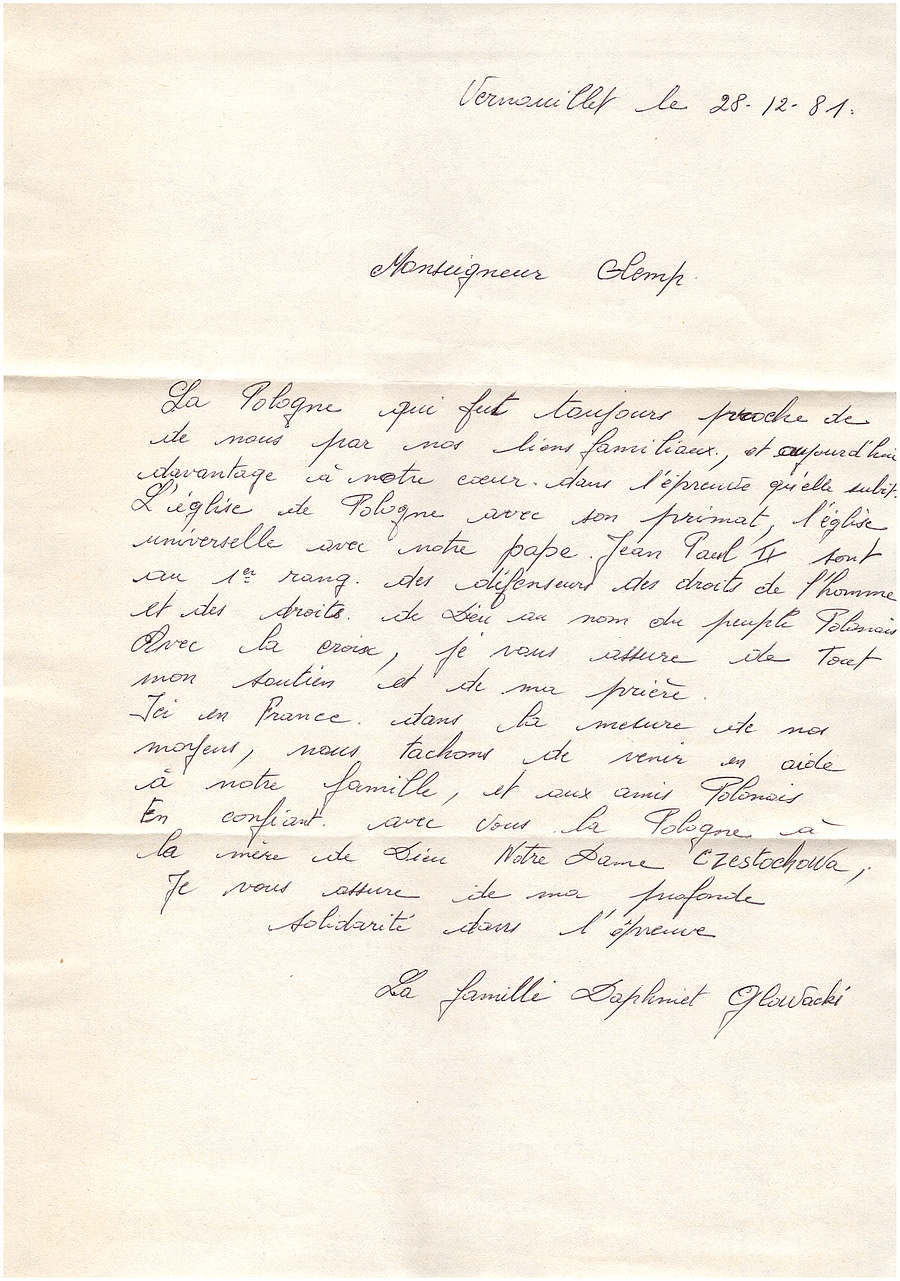 Vernouillet le 28-12-81.
Monseigneur Glemp.
La Pologne qui fut toujours proche de
de nous par nos liens familiaux, et aujourd'hui
davantage à notre cœur. dans l'épreuve qu'elle subit.
L'église de Pologne avec son primat, l'église
universelle avec notre pape. Jean Paul II sont
au 1er rang. des défenseurs des droits de l'homme
et des droits. de Dieu au nom du peuple Polonais
Avec la croix, je vous assure de tout
mon soutien et de ma prière.
Ici en France. dans la mesure de nos
moyens, nous tachons de venir en aide
à notre famille, et aux amis Polonais
En confiant avec vous la Pologne à
la mère de Dieu Notre Dame Czestochowa,
Je vous assure de ma profonde
solidarité dans l'épreuve
La famille Daphniet Glowacki